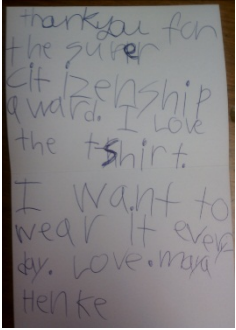 thankyou for
the surer
citizenship
award. I Love
the tShirt.
I want to
wear It every
day. Love. maya
Henke